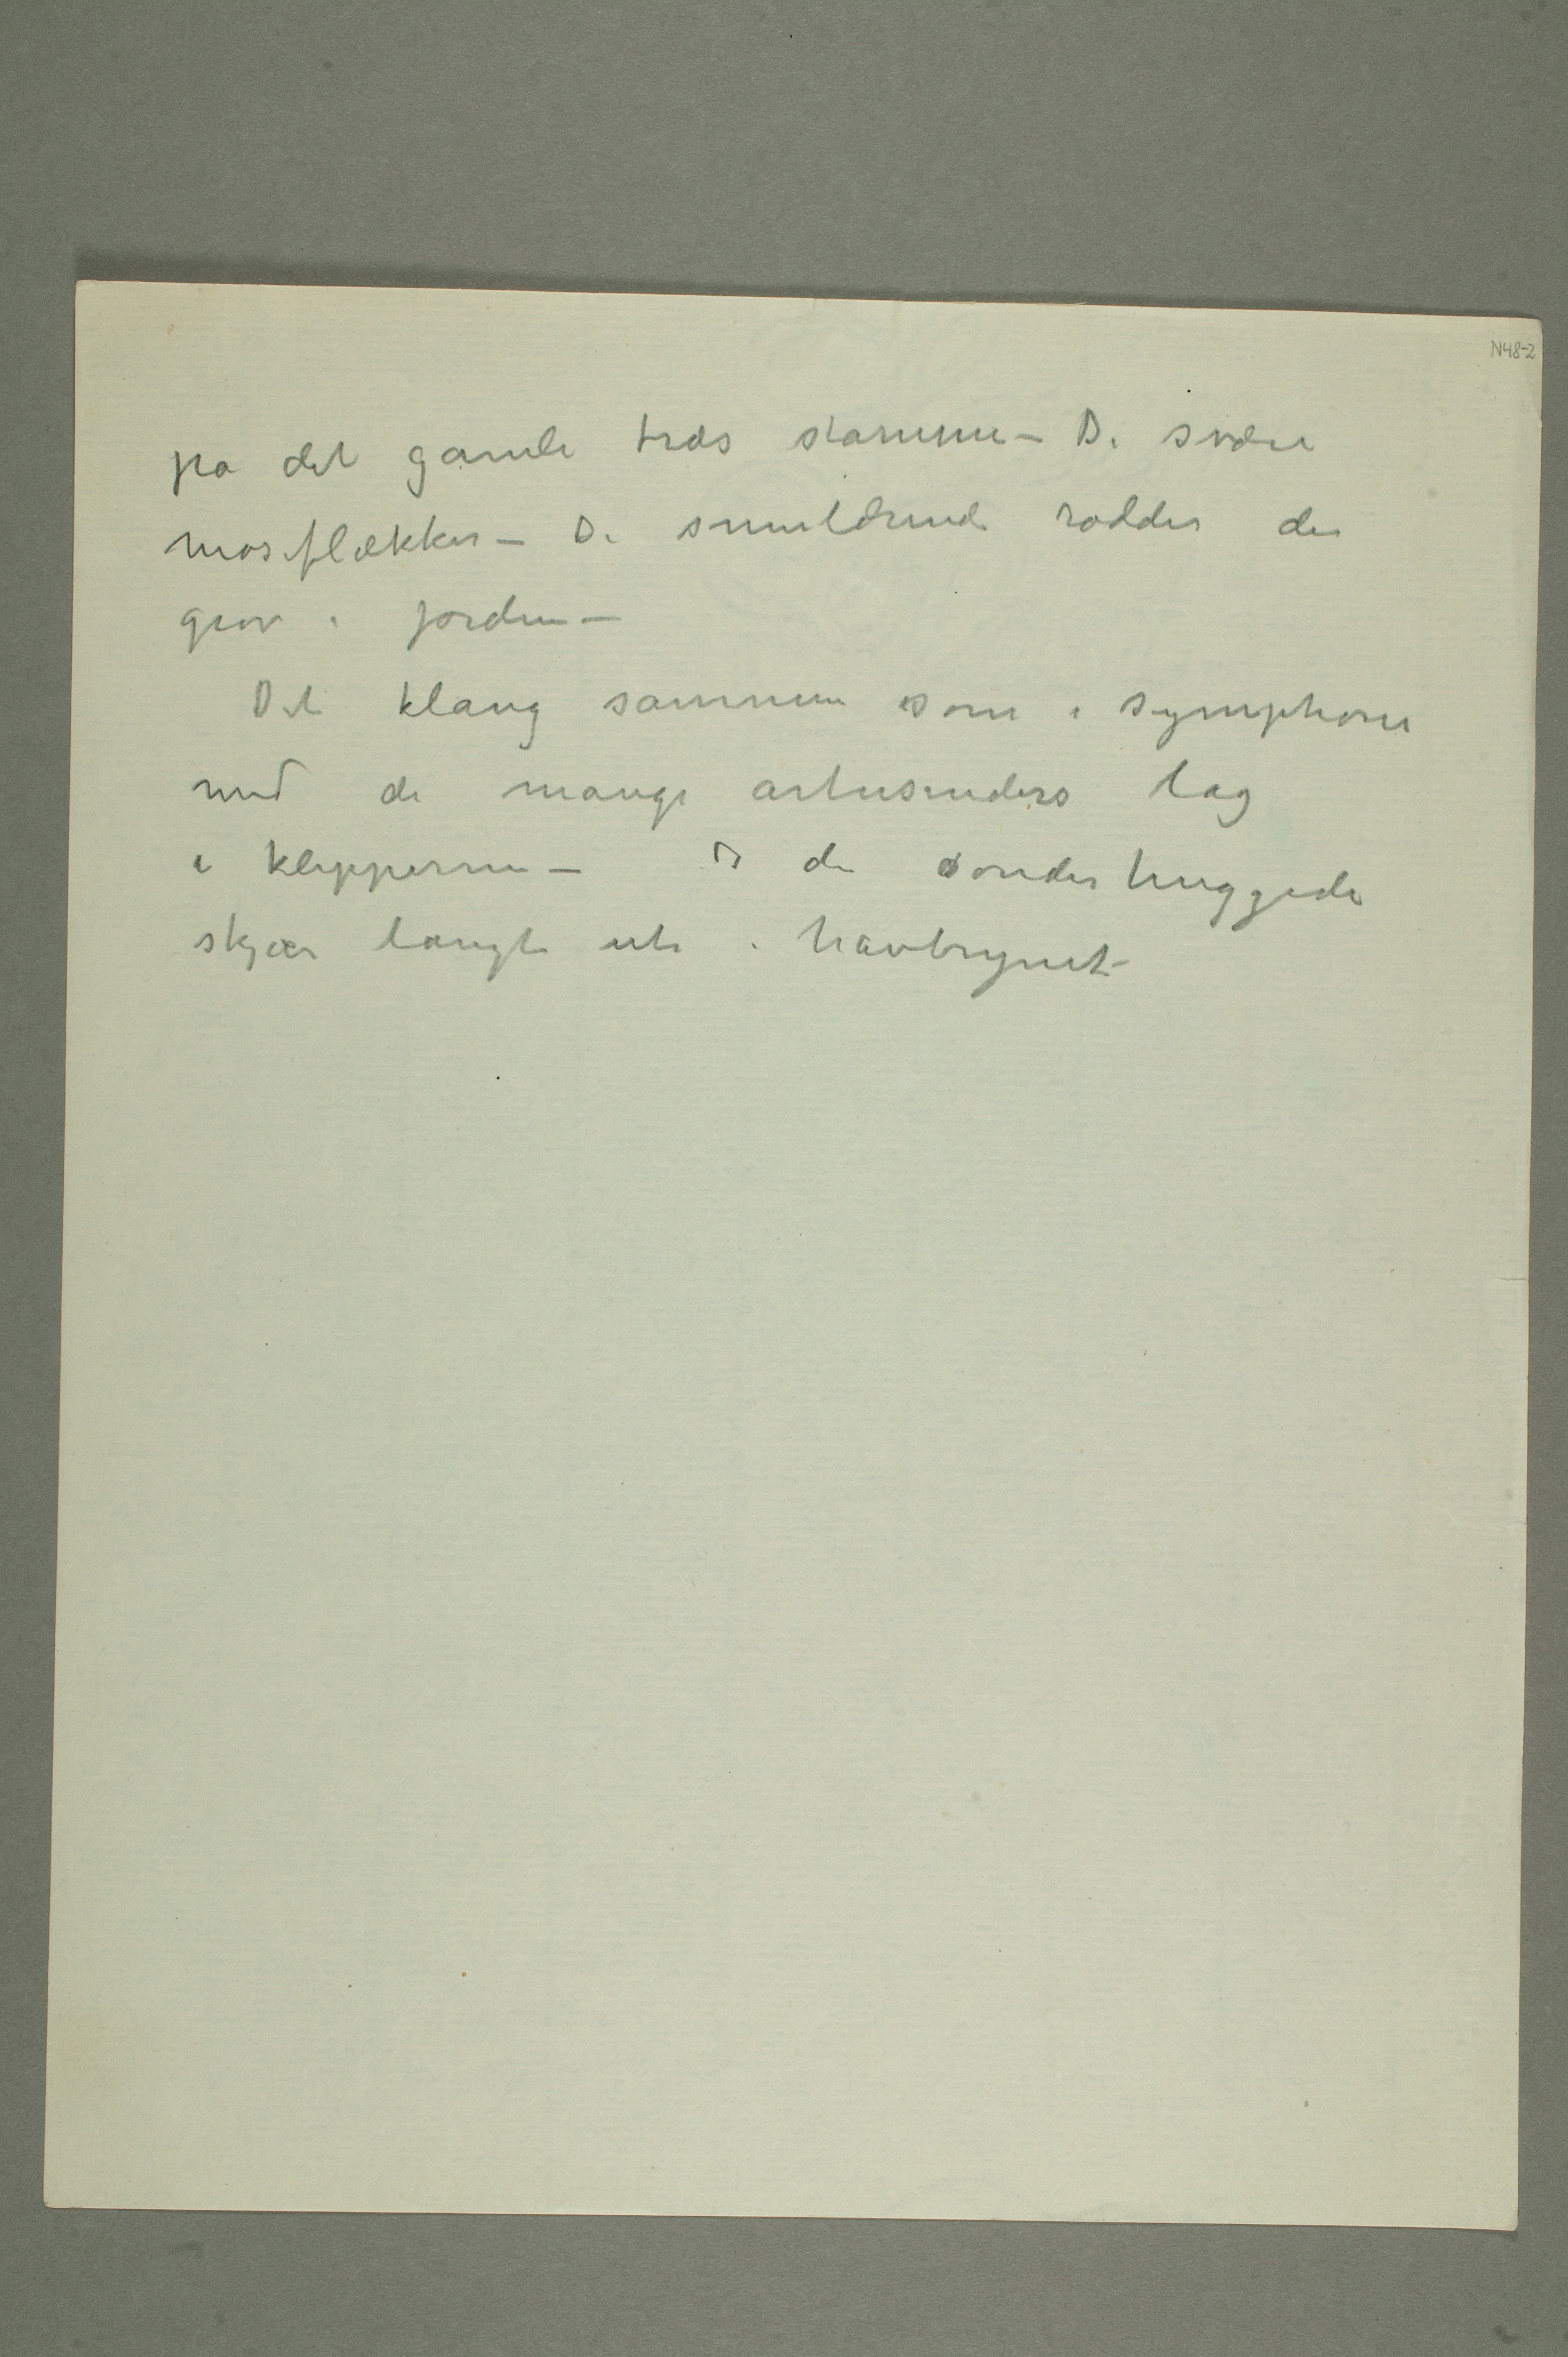 N48-2
pa det gamle træs stamme – De svære
moseflækker – De smældrende rødder der
grov i jorden –
Det klang sammen som i symphoni
med de mange artusenders lag
i klipperne – og de sønderhuggede
skjær langt ute i havbrynet –